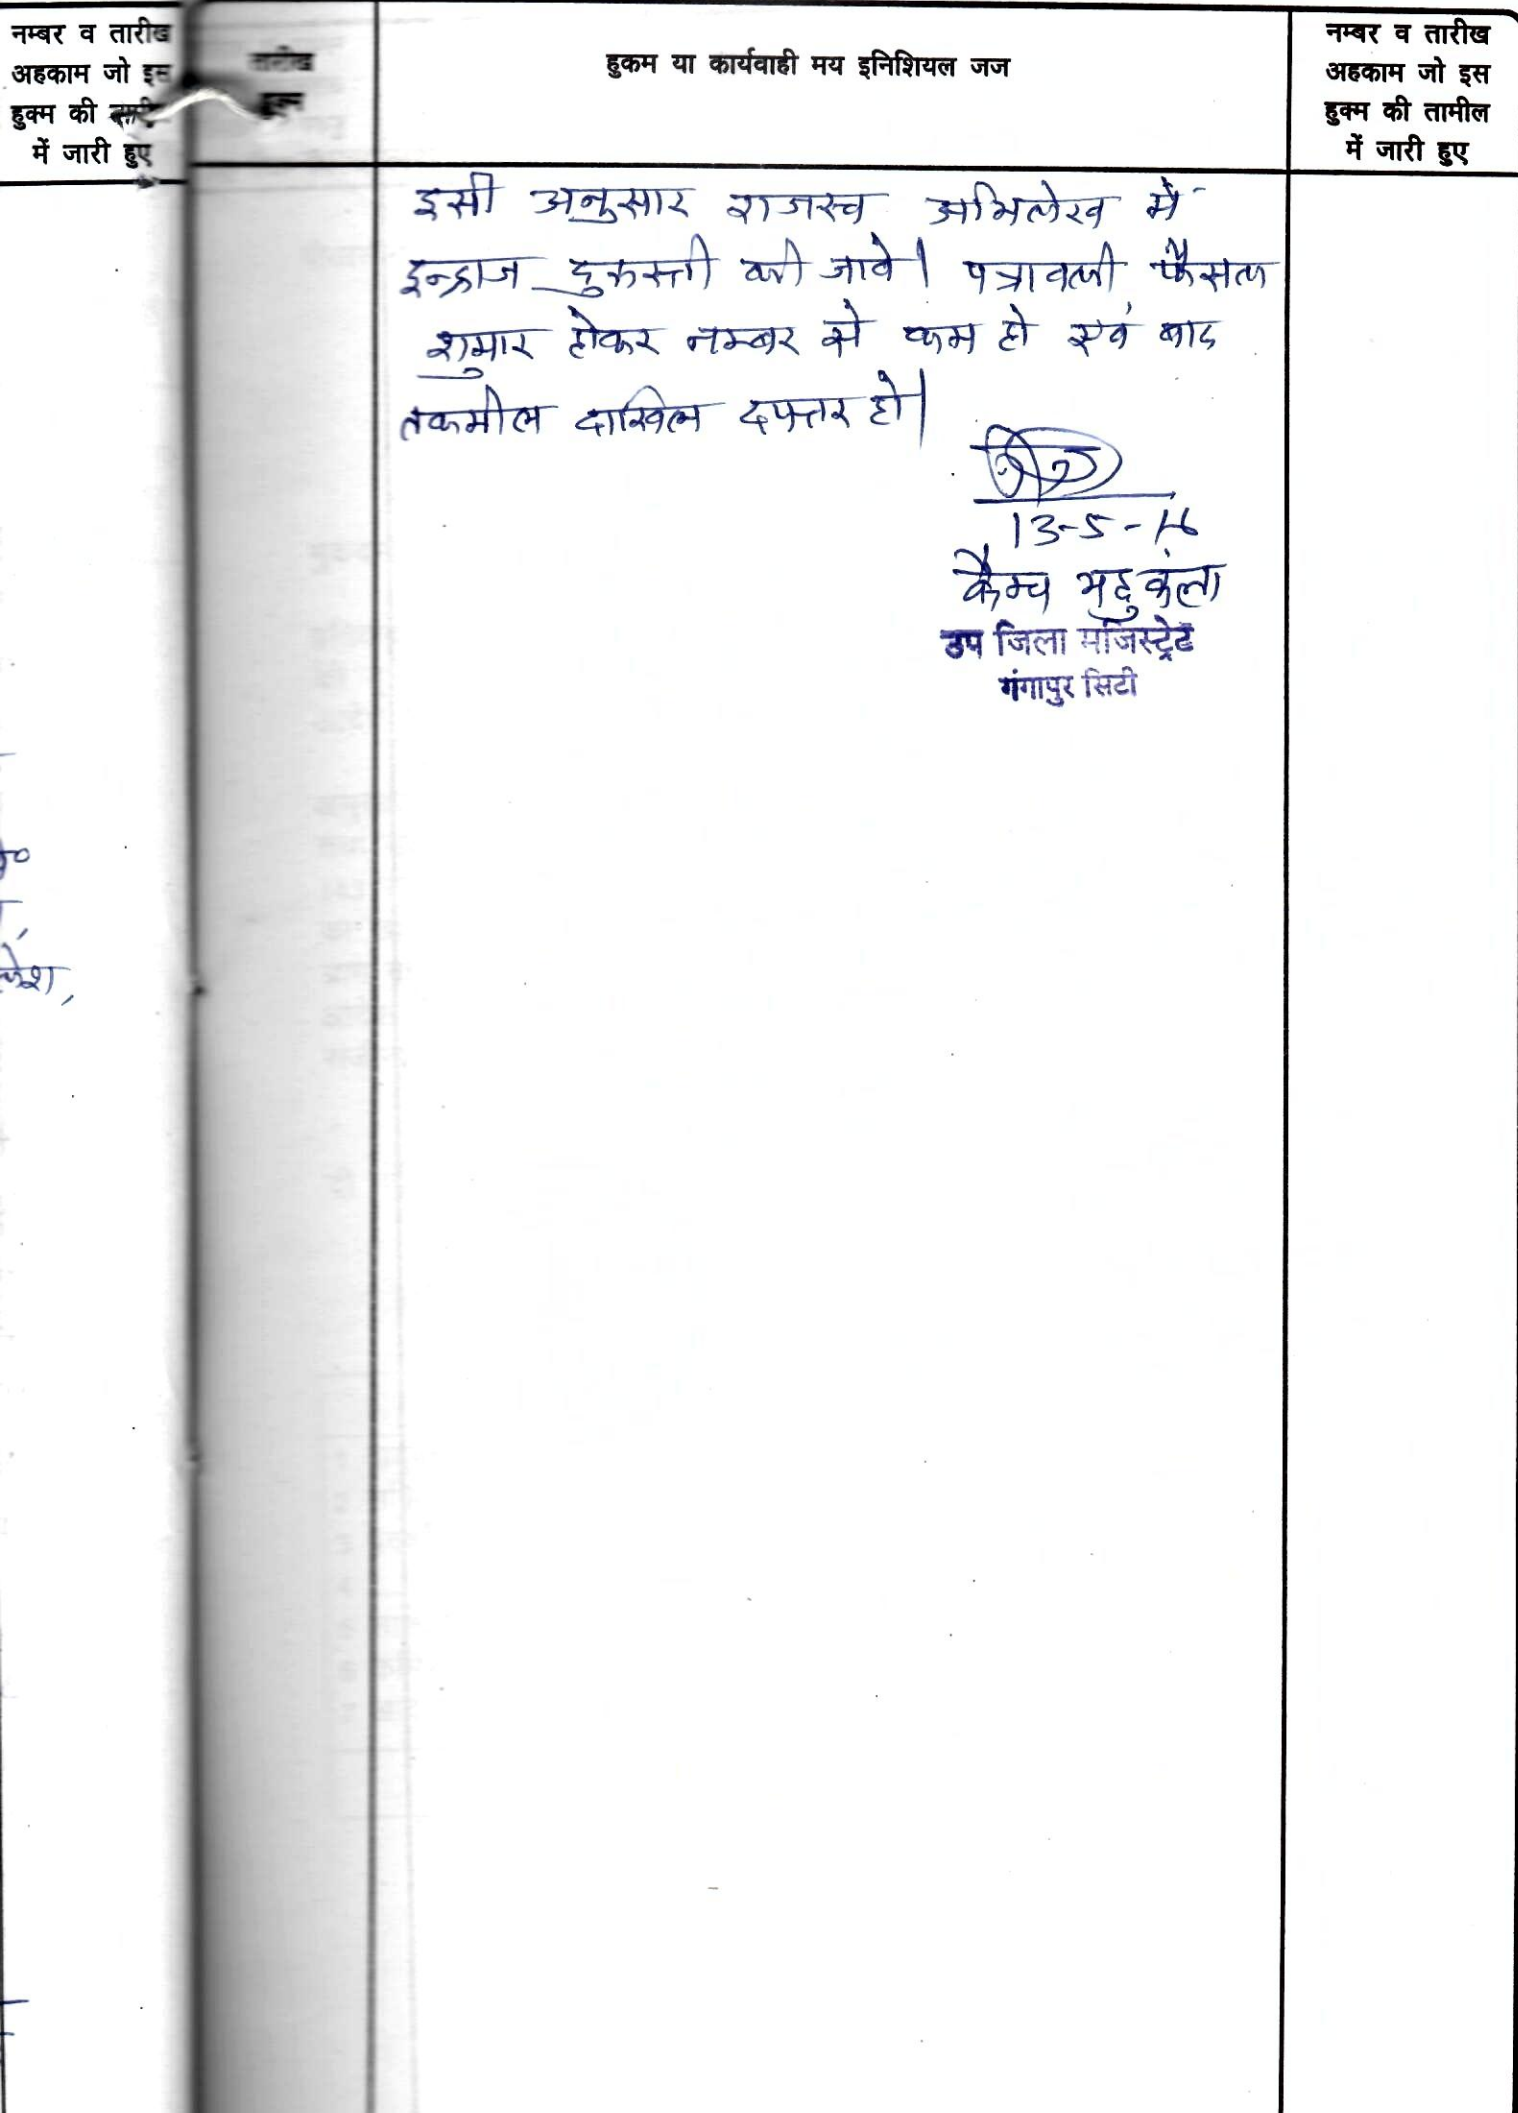 नम्बर व तारीख
अहकाम जो इस
हुक्म की
में जारी हुए
तारीख
हुक्म
हुकम या कार्यवाही मय इनिशियल जज
नम्बर व तारीख
अहकाम जो इस
हुक्म की तामील
में जारी हुए
इसी अनुसार राजस्व अभिलेख में
इन्द्राज दुरुस्ती की जावे। पत्रावली फैसल
शुमार होकर नम्बर से कम हो एवं बाद
तकमील दाखिल दफ्तर हो।
13-5-16
कैम्प
उप जिला मजिस्ट्रेट
गंगापुर सिटी